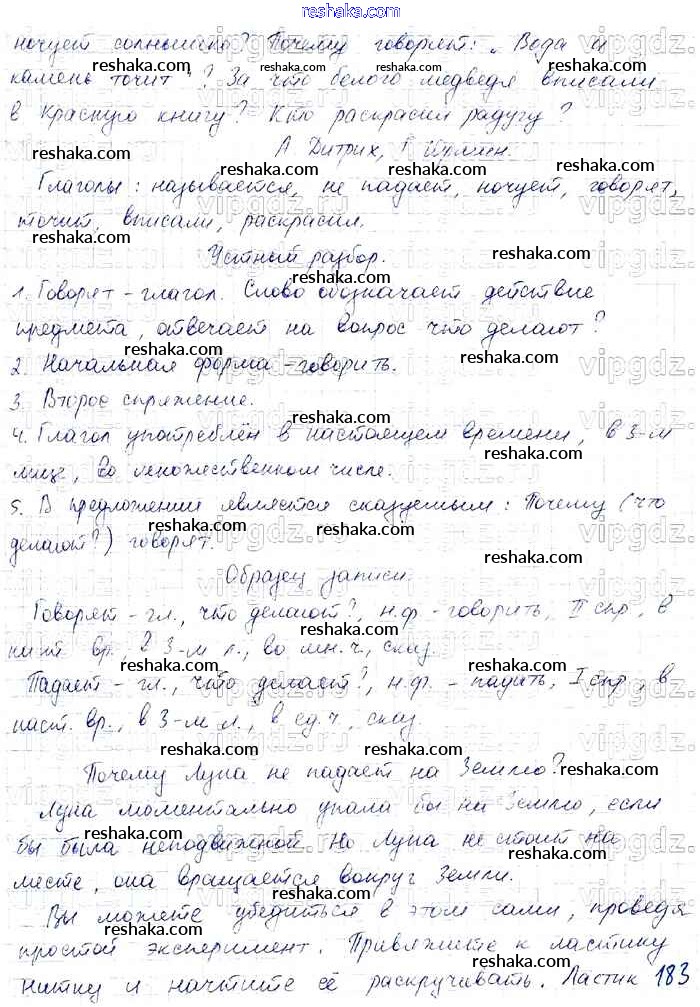 reshaka.com
ночует солнышко? Почему говорят: „Вода и
камень точит"? За что белого медведя вписали
в Красную книгу? Кто раскрасил радугу?
А Дитрих, Г Юрмин.
Глаголы: называется, не падает, ночует, говорят,
точит, вписали, раскрасил.
Устный разбор.
1. Говорят – глагол. Слово обозначает действие
предмета, отвечает на вопрос что делают?
2. Начальная форма – говорить.
3. Второе спряжение.
4. Глагол употреблён в настоящем времени, в 3-м
лице, во множественном числе.
5. В предложении является сказуемым: Почему (что
делают?) говорят.
Образец записи.
Говорят – гл., что делают?, н.ф – говорить, II спр, в
наст. вр., в 3-м л., во мн.ч., сказ.
Падает – гл., что делает?, н.ф. – Iспр, в
наст. вр., в 3-м л., в ед.ч, сказ.
Почему Луна не падает на Землю?
Луна моментально упала бы на Землю, если
бы была неподвижной Но Луна не стоит на
месте, она вращается вокруг Земли.
Вы можете убедиться в этом сами, проведя
простой эксперимент. Привяжите к ластику
нитку и начните её раскручивать. Ластик 183